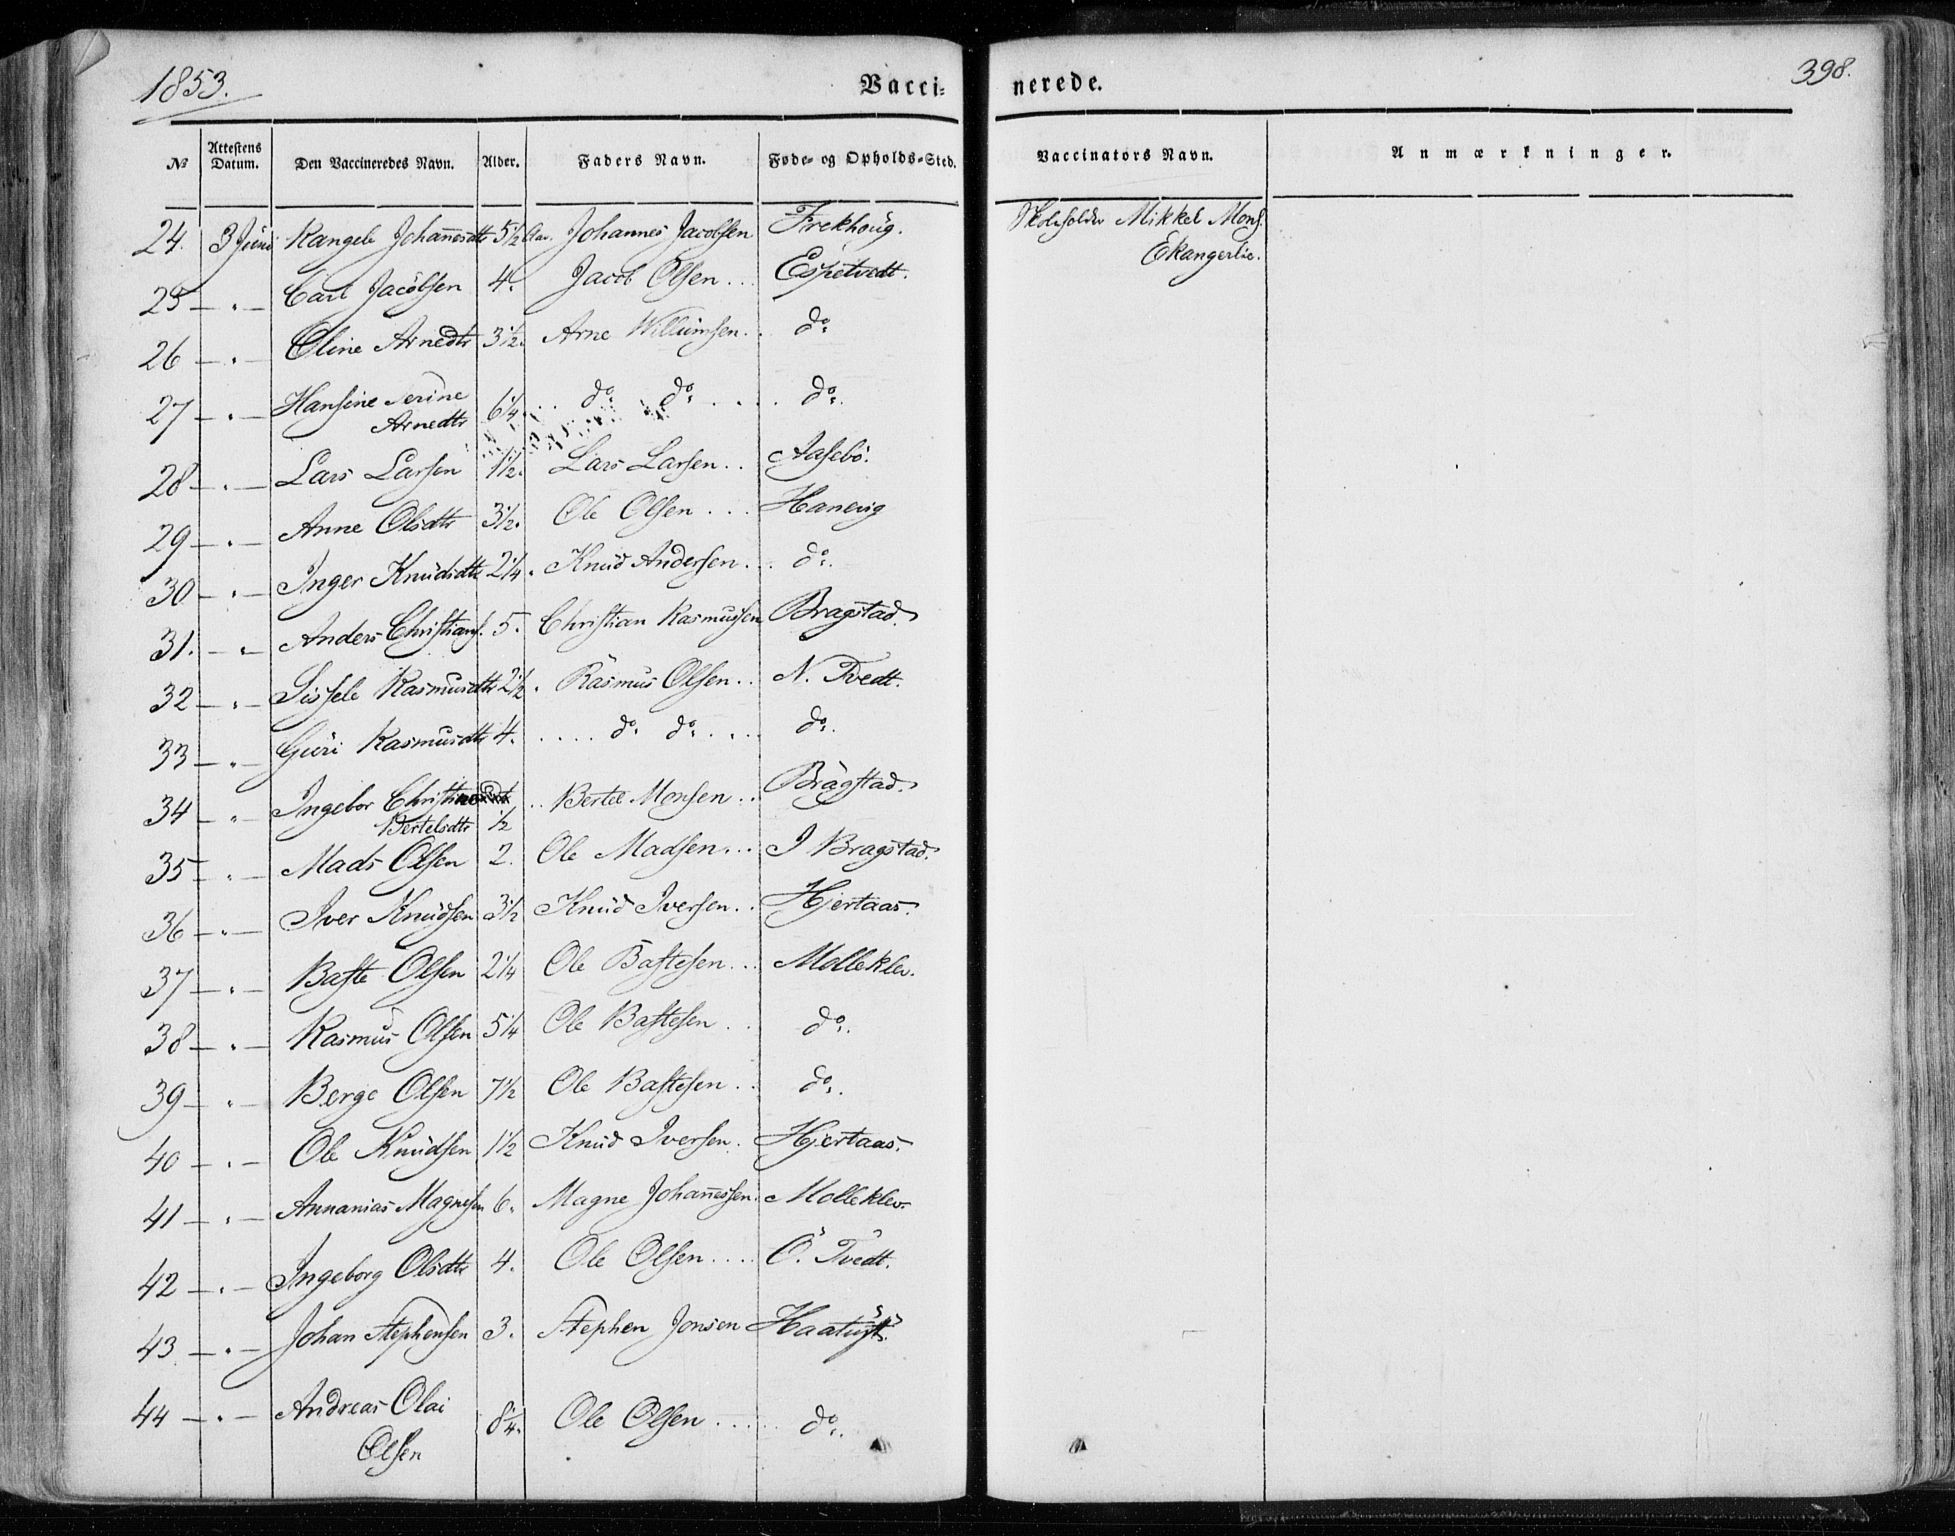 1853.
Vacci-
nerede.
398.
No Attestens Datum. Den Vaccineredes Navn. Alder. Faders Navn. Føde- og Opholds-Sted. Vaccinators Navn. Anmærkninger.
24. 3 Juni Rangele Johannesdtr 5 1/2 Aar. Johannes Jacobsen Frekhoug. Skoleholder Mikkel Mons.
Ekangerlie.
25 — " — Carl Jacobsen 4. Jacob Olsen .. Espetvedt.
26 — " — Oline Arnedtr 3 1/2. Arne Willumsen. do
27 — " — Hansine Serine
Arnedtr 6 1/4. .. do do .... do.
28 — " — Lars Larsen 1 1/2. Lars Larsen .. Aasebö.
29 — " — Anne Olsdtr 3 1/2. Ole Olsen ... Hanevig
30 — " — Inger Knudsdtr 2 1/4. Knud Andersen .. do.
31. — " — Anders Christians. 5. Christian Rasmussen Bragstad.
32 — " — Sissele Rasmusdtr 2 1/2. Rasmus Olsen .. N. Tvedt.
33 — " — Guri Rasmusdtr 4. .... do do .... do.
34 — " — Ingebor .. Bertel Monsen .. Bragstad.
Bertelsdtr 1/2
35 — " — Mads Olsen 2. Ole Madsen ... I Bragstad.
36 — " — Iver Knudsen 3 1/2 Knud Iversen .. Hjertaas.
37 — " — Baste Olsen 2 1/4 Ole Bastesen ... Molleklev.
38 — " — Rasmus Olsen 5 1/4 Ole Bastesen .. do.
39 — " — Berge Olsen 7 1/2 Ole Bastesen .. do.
40 — " — Ole Knudsen 1 1/2 Knud Iversen. Hjertaas.
41 — " — Annanias Magnesen 6. Magne Johannessen. Molleklev.
42 — " — Ingeborg Olsdtr 4. Ole Olsen .... Ö. Tvedt.
43 — " — Johan Stephensen 3. Stephen Jonsen
44 — " — Andreas Olai
Olsen 8 1/4. Ole Olsen .... do.